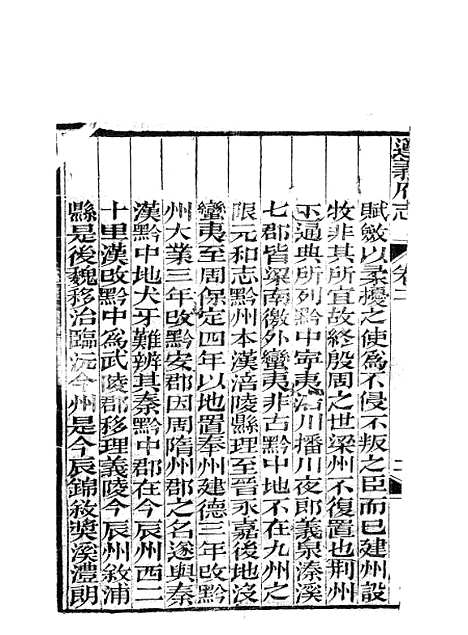 遵義府志 卷二 二
賦斂以柔擾之使爲不侵不叛之臣而巳建州設
牧非其所宜故終殷周之世梁州不復置也荆州
下通典所列黔中寧夷涪川播川夜郎義泉溱溪
七郡皆梁南徼外蠻夷非古黔中地不在九州之
限元和志黔州本漢涪陵縣理至晉永嘉後地沒
蠻夷至周保定四年以地置奉州建德三年改黔
州大業三年改黔安郡因周隋州郡之名遂與秦
漢黔中地犬牙難辨其秦黔中郡在今辰州西二
十里漢改黔中爲武陵郡移理義陵今辰州敘浦
縣是後魏移治臨沅今州是今辰錦敘奬溪澧朗